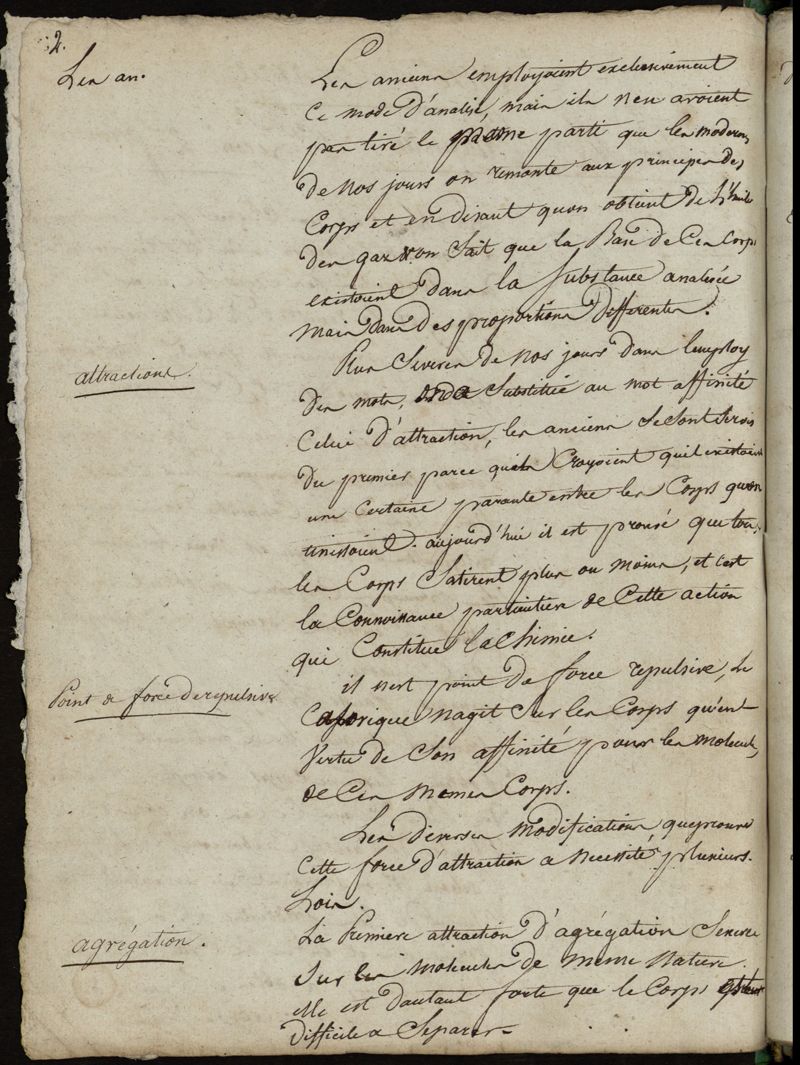 2.
Les an.
Les anciens employoient exclusivement
Ce mode d'analise, mais ils n'en avoient
pas tiré le même parti que les modernes
de Nos jours on remonte aux principes des
Corps et en disant qu'on obtient de l'huile
des gaz on sait que la Base de Ces Corps
existoient dans la substance analisée
mais dans des proportions differentes.
attractions.
Plus Severes de Nos jours dans l'employ
des mots, on a Substitué au mot affinité
Celui d'attraction, les anciens se sont servis
du premier parce qu'ils Croyoient quil existoient
une Certaine parenté entre les Corps qu'on
unissoient. aujourd'hui il est prouvé que tous
les Corps S'atirent plus ou moins, et c'est
la Connoissance particuliere de Cette action
qui Constitue la Chimie.
Point de force de repulsive
il n'est point de force repulsive, le
Calorique n'agit sur les Corps qu'en
Vertu de Son affinité pour les molecules
de Ces Memes Corps.
Les diverses modifications qu'eprouve
Cette force d'attraction a Necessité plusieurs.
Loix.
agrégation.
La Premiere attraction d'agrégation S'exerce
Sur les Molecules de meme Nature.
elle est dautant forte que le Corps est
Difficile a Separer.